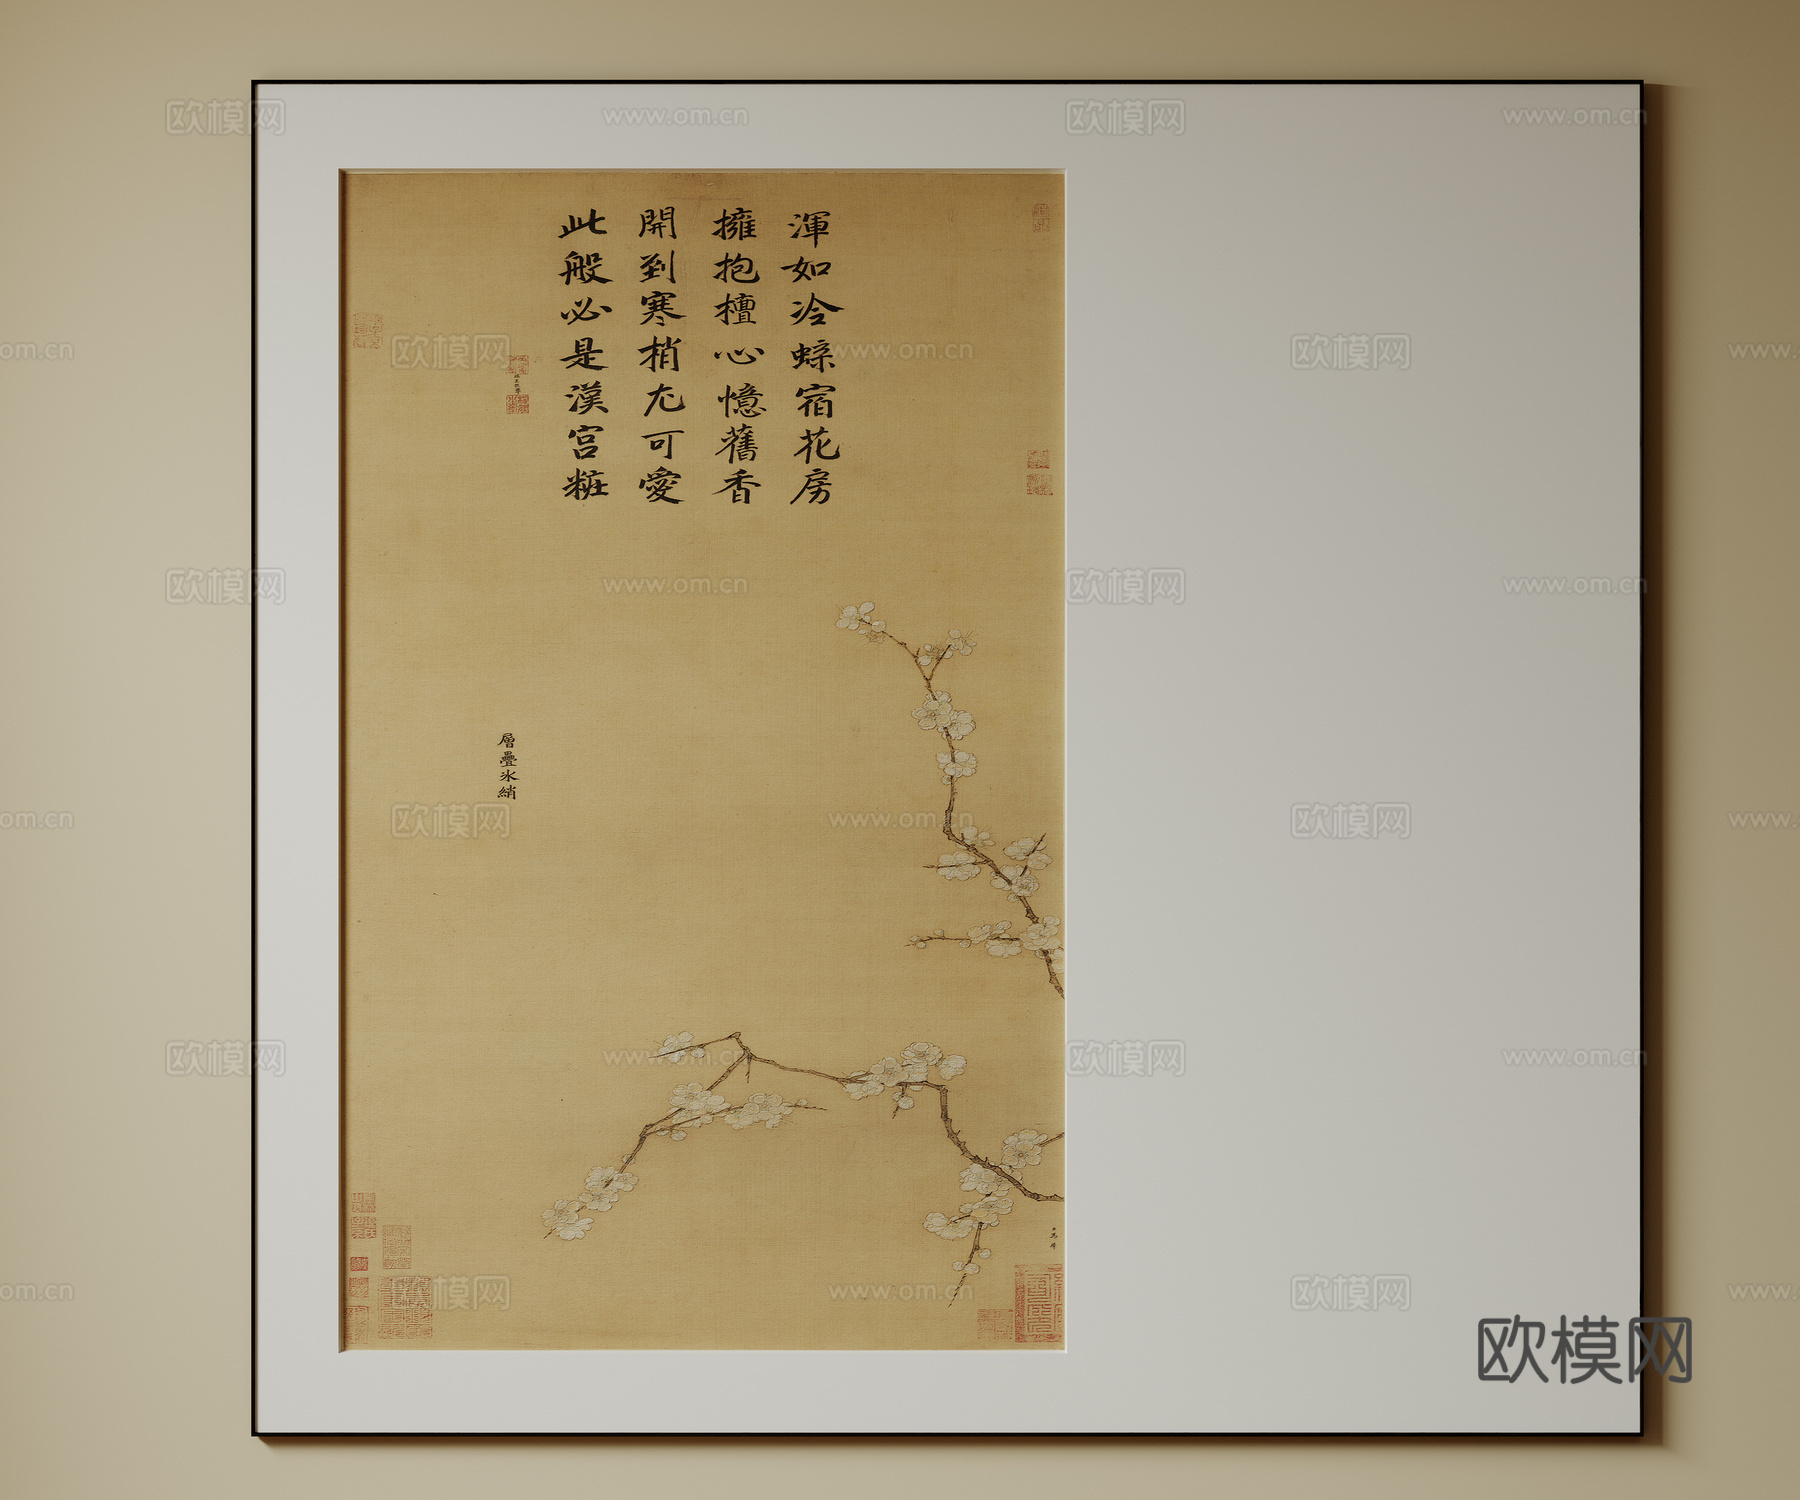 渾如冷蜨宿花房
擁抱檀心憶舊香
開到寒梢尤可愛
此般必是漢宮粧
層疊冰綃
欧模网
www.om.cn